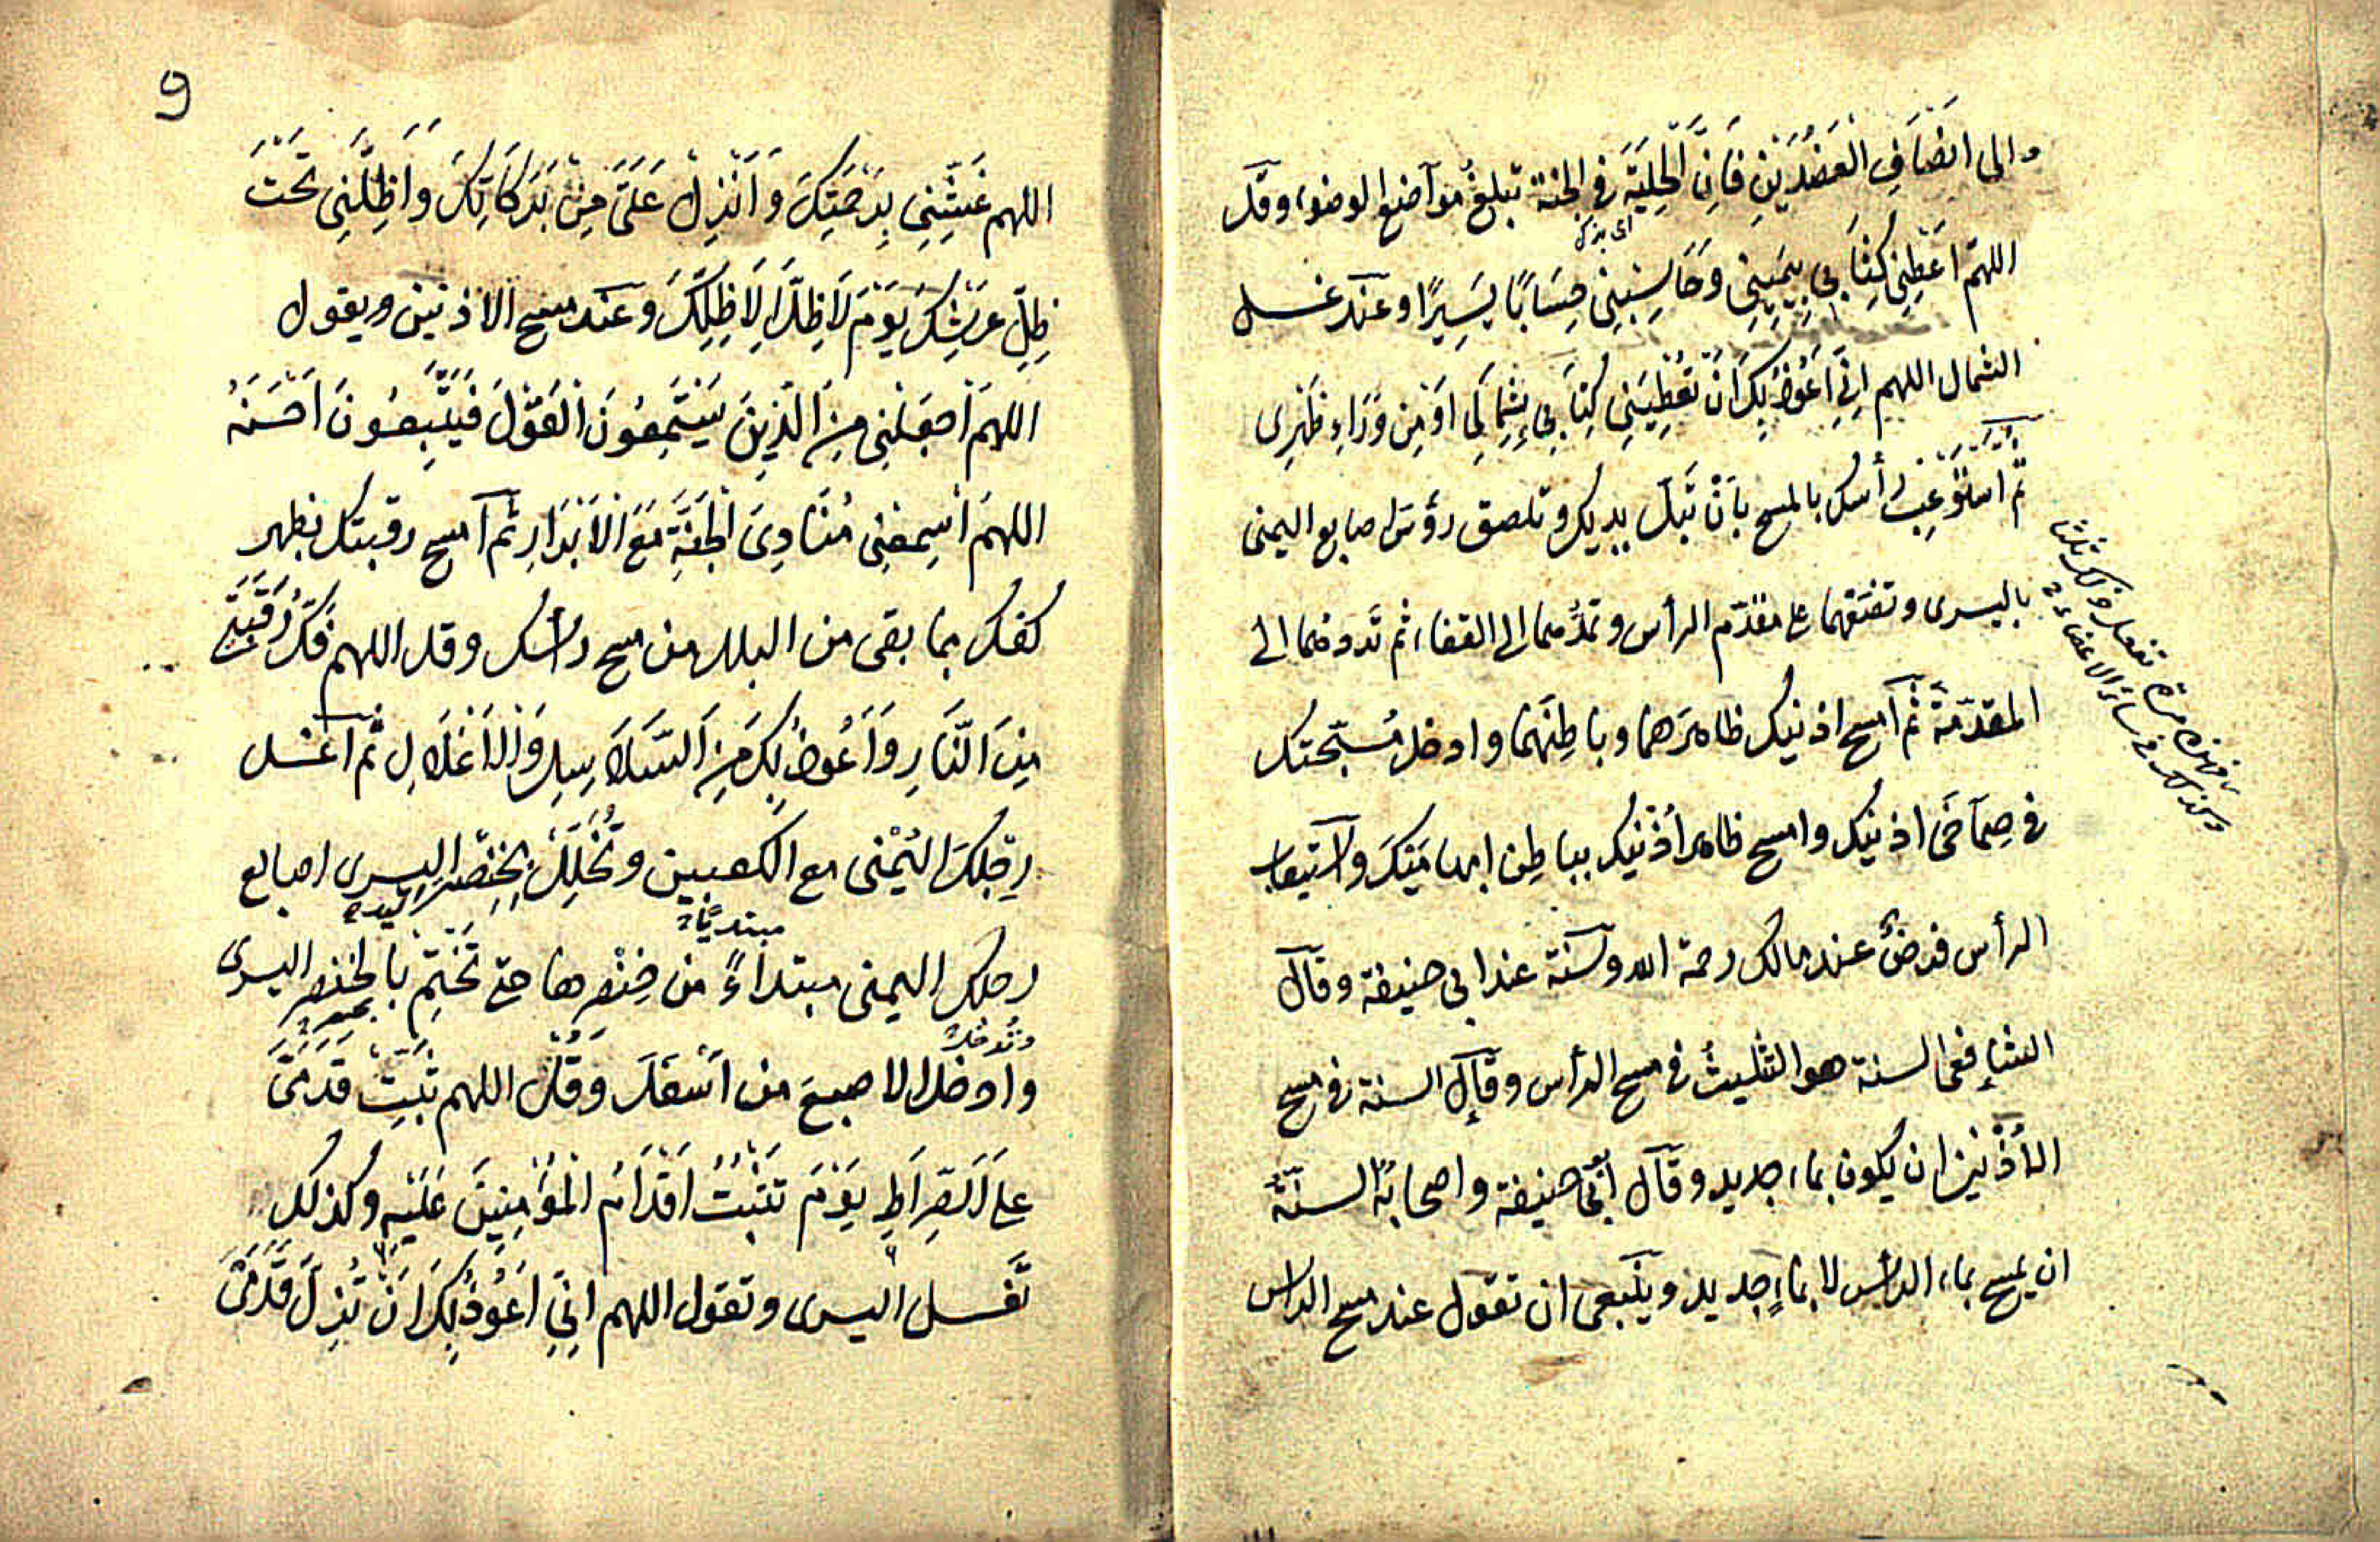 والى انصاف العضدين فَاِنَّ الحِلْيَةَ فى الجنة تبلغ موآضع الوضوء وقل
اى بزكه
اللهمّ اَعْطِنِى كِتَابِى بِيَمِينِى وَحَاسِبْنِى حِسَابًا يَسِيرًا وعند غسل
الشمال اللهم اِنِّى اَعُوذُ بِكَ اَنْ تُعْطِيَنِى كِتَابِى بِشِمَالِى اَوْ مِن وَرَاءِ ظَهْرِى
ثم اسْتَوْعِبْ رأسك بالمسح بِاَنْ تَبُلَّ يديك وتلصق رؤس اصابع اليمنى
باليسرى وتضعهما على مقدّم الرأس وتمُدُّهما الى القفاء ثم تَردهما الى
المقدّمة ثم آمسح اذنيك ظاهرَهما وباطِنَهُما وادخل مُسَبِّحَتَيك
فى صِمَآخَى اذنيك وامسح ظاهر اُذْنَيْك بباطِن ابهامَيْكَ وآستيعاب
الرأس فرضٌ عند مالك رحمة الله وسنّة عند ابى حنيفة وقال
الشافعى السنة هو التثليثُ فى مسح الرأس وقال السنة فى مسح
الاُذْنين ان يكون بماء جديد وقال ابى حنيفة واصحابهُ السنّةُ
ان يمسح بماء الرأس لا بماءٍ جديد وينبغى ان تقول عند مسح الراس
فهذه مرة تفعل ذلك ثلثا
وكذلك فى سائر الاعضاء
9
اللهم غَشِّنِى بِرَحْمَتِكَ وَاَنْزِلْ عَلَىَّ مِنْ بَرَكَاتِكَ وَاَظِلَّنِى تَحْتَ
ظِلِّ عَرْشِكَ يَوْمَ لَا ظِلَّ اِلَّا ظِلُّكَ وعند مسح الاذنين ويقول
اللهمَّ اجْعَلْنِى مِنَ الَّذِينَ يَسْتَمِعُونَ الْقَوْلَ فَيَتَّبِعُونَ اَحْسَنَهُ
اللهمَّ اَسْمِعْنِى مُنَادِىَ الْجَنَّةِ مَعَ الْاَبْرَارِ ثم آمسح رقبتك بظهر
كفك بما بقى من البلل من مسح رأسك وقل اللهم فُكَّ رَقَبَتِى
مِنَ النَّارِ وَاَعُوذُ بِكَ مِنَ السَّلَاسِلِ وَالْاَغْلَالِ ثم آغسل
رِجْلَكَ الْيُمْنَى مع الكعبين وَتُخَلِّلُ بِخِنْصَرِ اليسرى اصابع
اليد
مبتديًا
رجلك اليمنى مبتداءً من خِنْصَرِها حتى تَخْتِمَ بالخنصر اليسرى
وتُدخل
وادخل الاصبع من اَسْفَلَ وَقُلْ اللهم ثَبِّتْ قَدَمَىَّ
عَلَى الصِّرَاطِ يَوْمَ تَثْبُتُ اَقْدَامُ الْمُؤْمِنِينَ عَلَيْهِ وكذلك
تَغْسل اليسرى وتقول اللهم اِنِّى اَعُوذُ بِكَ اَنْ تُزِلَّ قَدَمَىَّ